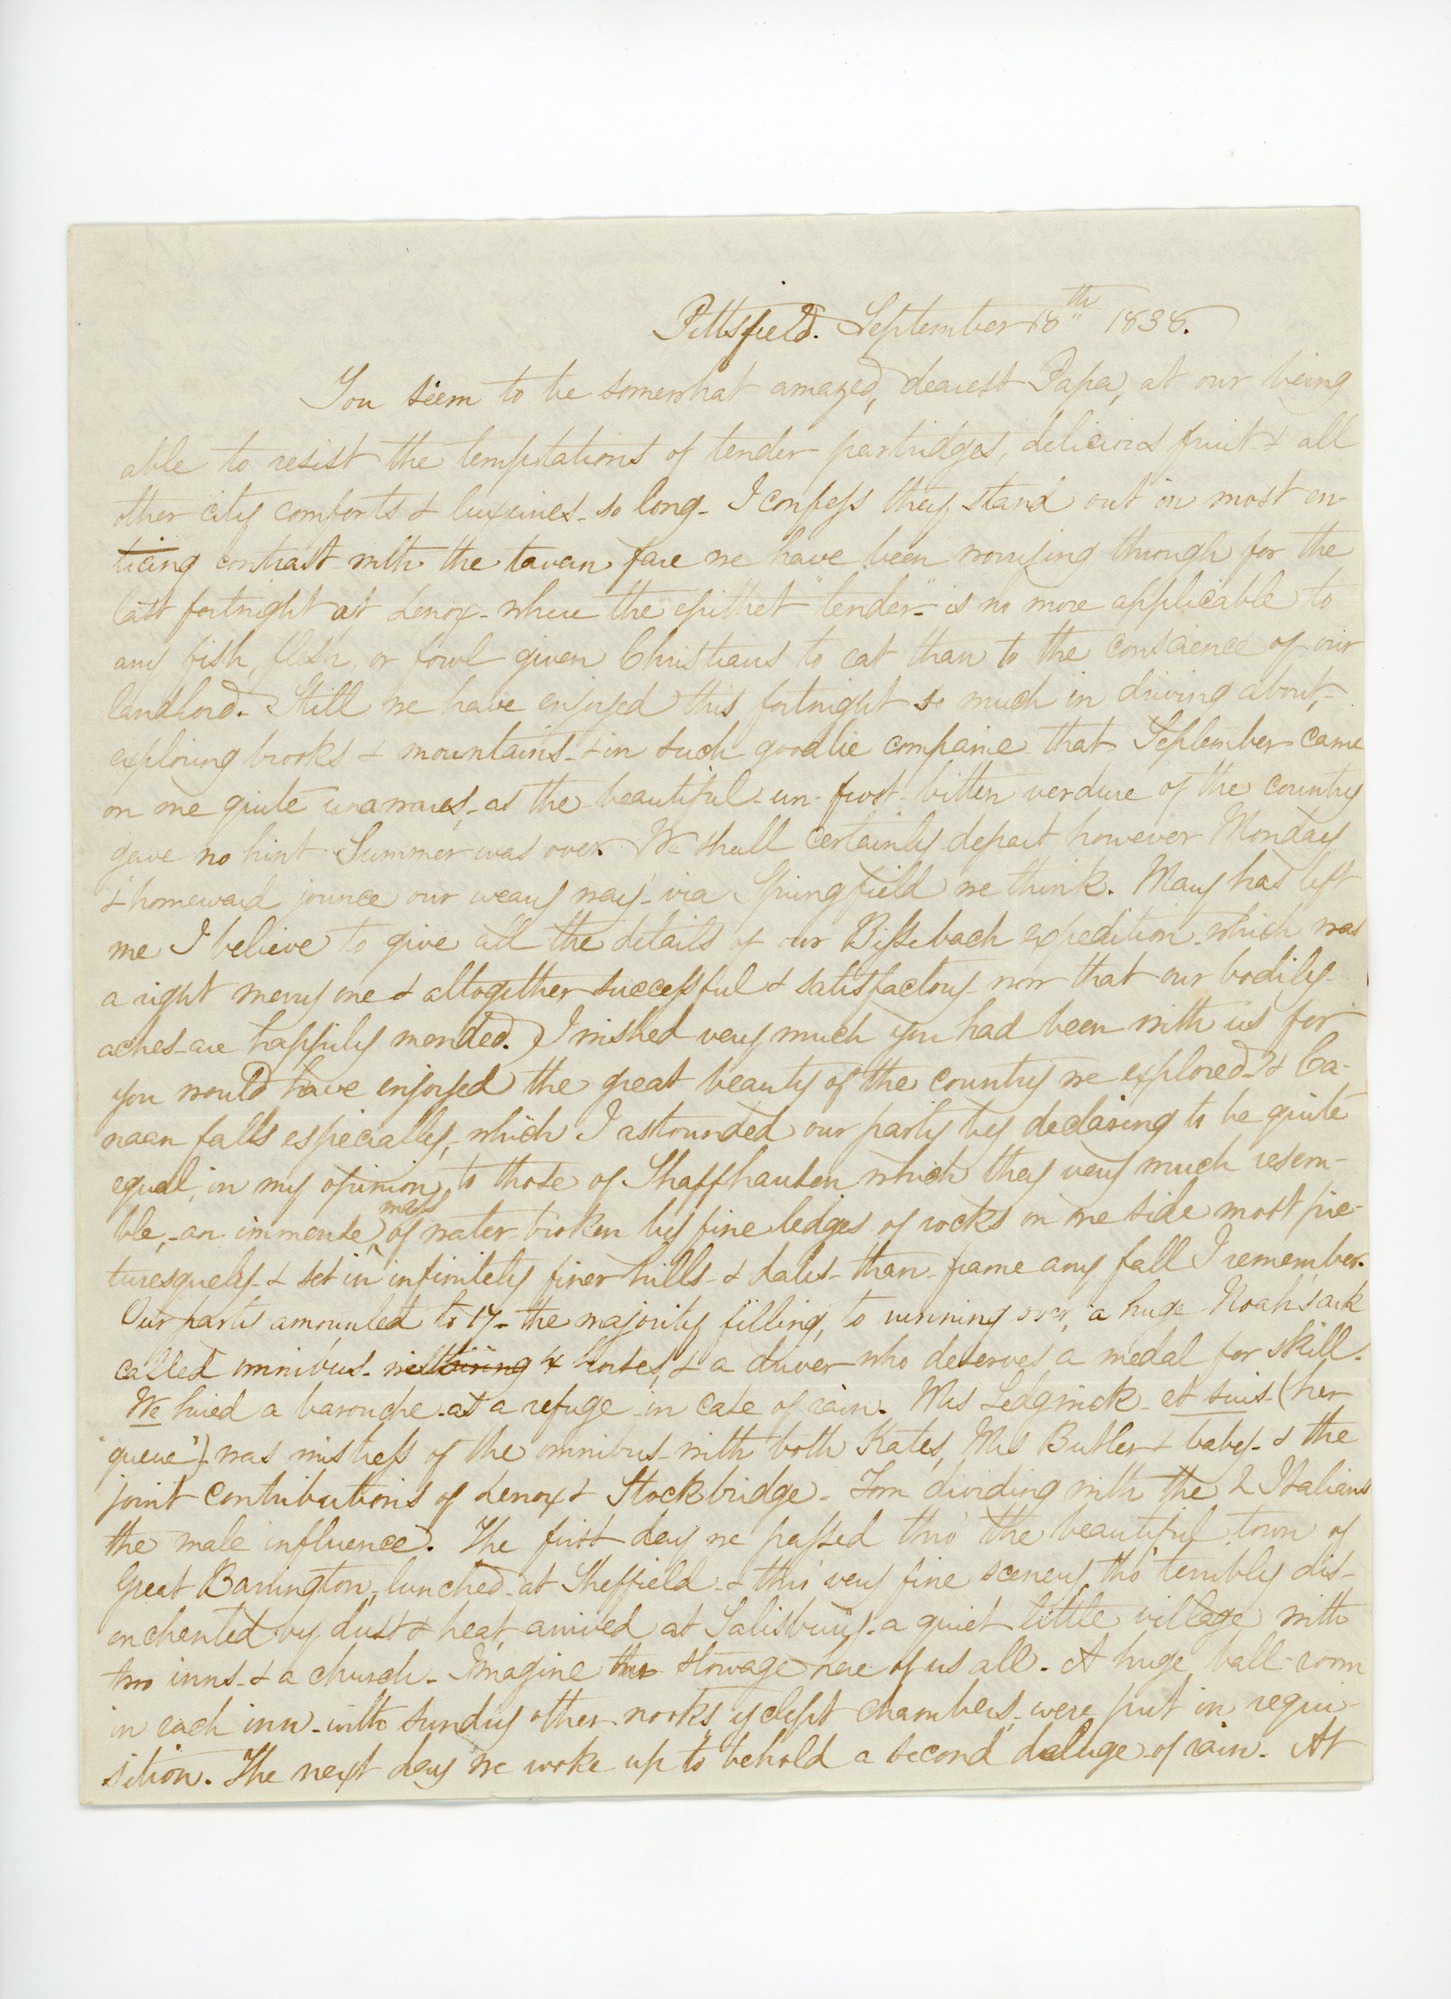 Pittsfield. September 18th 1838.
You seem to be somewhat amazed, dearest Papa, at our being
able to resist the temptations of tender partridges, delicious fruit & all
other city comforts & luxuries - so long - I confess they stand out in most en-
ticing contrast with the tavern fare we have been worrying through for the
last fortnight at Lenox - where the epithet "tender" is no more applicable to
any fish, flesh, or fowl given Christians to eat than to the conscience of our
landlord. Still we have enjoyed this fortnight so much in driving about, -
exploring brooks & mountains - & in such goodlie companie that September came
on me quite unawares, - as the beautiful - un-frost-bitten verdure of the country
gave no hint Summer was over. We shall certainly depart however Monday
& homeward jounce our weary way - via Springfield we think. Mary has left
me I believe to give all the details of our Bashbach expedition - which was
a right merry one & altogether successful & satisfactory - now that our bodily
aches - are happily mended. I wished very much you had been with us for
you would have enjoyed the great beauty of the country we explored - & Ca-
naan falls especially, - which I astounded our party by declaring to be quite
equal, in my opinion, to those of Shaffhausen which they very much resem-
ble, - an immense mass of water broken by fine ledges of rocks on one side most pic-
turesquely - & set in infinitely finer hills - & dales - than - frame any fall I remember.
Our party amounted to 17 - the majority filling, to running over, a huge Noah's ark
called omnibus - with 4 horses, & a driver who deserves a medal for skill.
We hired a barouche - as a refuge in case of rain. Mrs Sedgwick - et suis - (her
"queue") - was mistress of the omnibus - with both Kates, Mrs Butler & baby - & the
joint contributions of Lenox & Stockbridge - Tom dividing with the 2 Italians
the male influence. The first day we passed thro' the beautiful town of
Great Barrington, lunched - at Sheffield - & thro' very fine scenery tho' terribly dis-
enchanted by dust & heat, arrived at Salisbury - a quiet little village with
two inns - & a church - Imagine the stowage here of us all. A huge ball-room
in each inn - with sundry other nooks, yclept chambers, - were put in requi-
sition. The next day we woke up to behold a second deluge - of rain - At